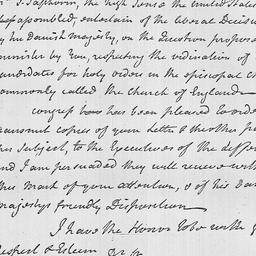 J. Saphorin, the high sense the United States
assembled, entertain of the liberal Decisi
by his Danish majesty, on the question propos
minister by you, respecting the ordination of
andidates for holy orders in the episcopal c
ommonly called the Church of England
congress has been pleased to orde
ransmit copies of your Letter & the other pa
this Subject, to the Executives of the diffe
and I am persuaded they will receive with
this mark of your attention, & of his Dan
majestys friendly Disposition
I have the Honor to be with g
Respect & Esteem